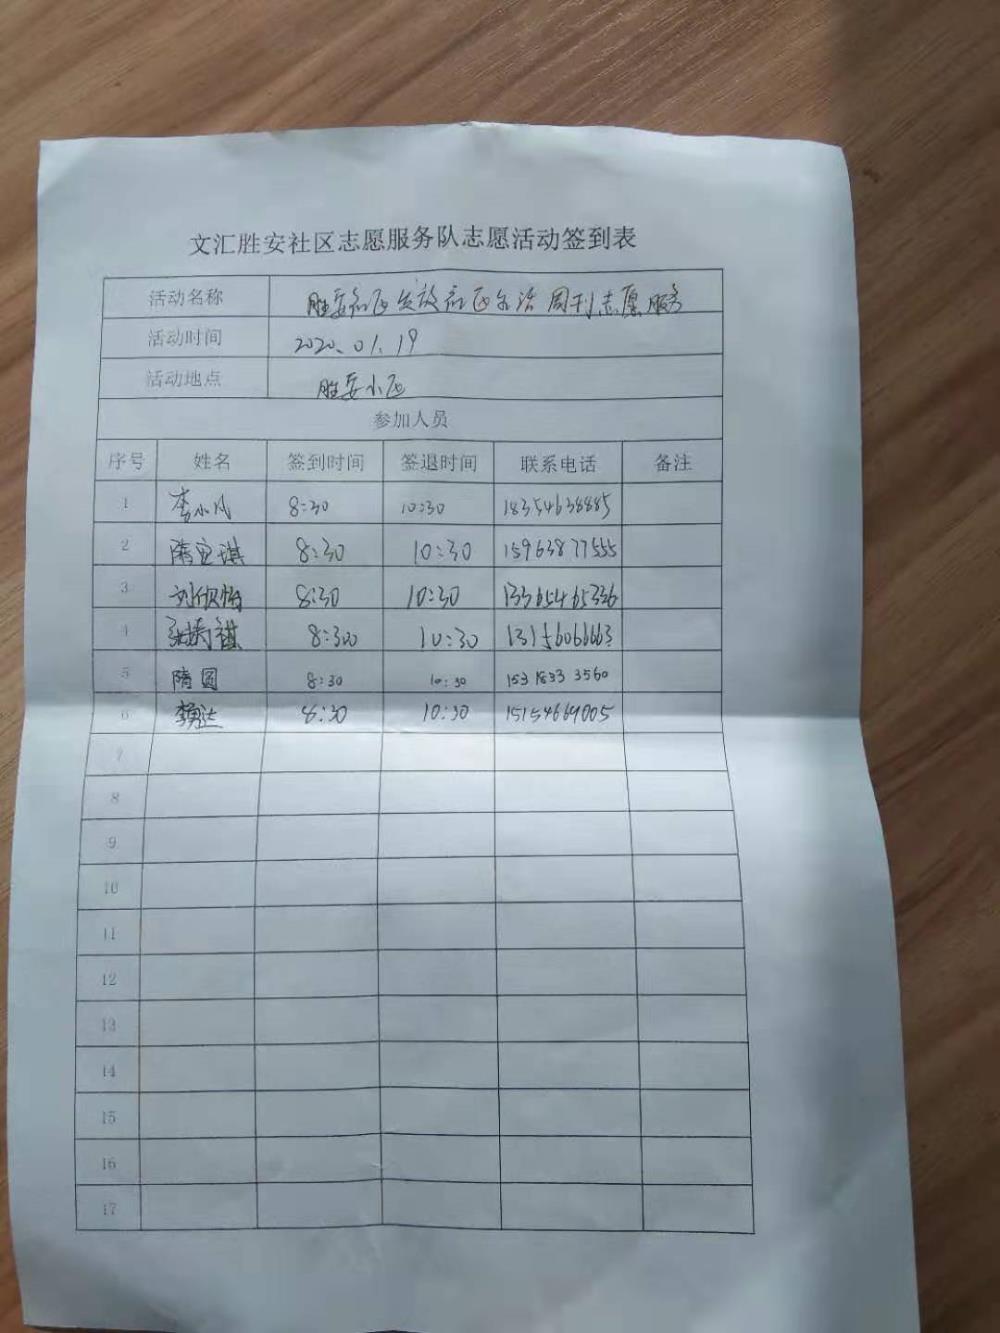 文汇胜安社区志愿服务队志愿活动签到表
活动名称 胜安社区发放社区生活周刊志愿服务
活动时间 2020.01.19
活动地点 胜安小区
参加人员
序号 姓名 签到时间 签退时间 联系电话 备注
1 李小凡 8:30 10:30 18354638885
2 隋宜琪 8:30 10:30 15963877555
3 刘欣怡 8:30 10:30 13365465336
4 8:300 10:30 13156066663
5 隋圆 8:30 10:30 153 1833 3560
6 8:30 10:30 15154669005
7
8
9
10
11
12
13
14
15
16
17